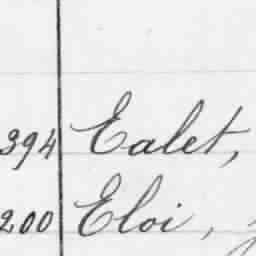 394 Ealet,
200 Eloi,